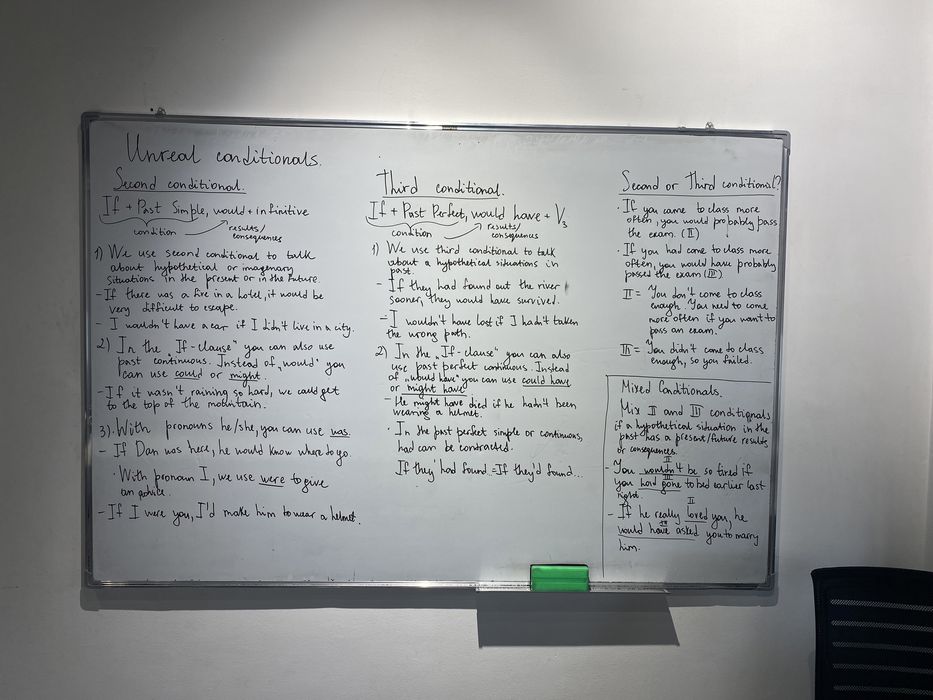 Unreal conditionals.
Second conditional.
If + Past Simple, would + infinitive
condition
results/
consequences
1) We use second conditional to talk
about hypothetical or imagenary
situations in the present or in the future.
- If there was a fire in a hotel, it would be
very difficult to escape.
- I wouldn't have a car if I didn't live in a city.
2) In the „If-clause" you can also use
past continuous. Instead of „would" you
can use could or might.
- If it wasn't raining so hard, we could get
to the top of the mountain.
3). With pronouns he/she, you can use was.
- If Dan was here, he would know where to go.
· With pronoun I, we use were to give
an advice.
- If I were you, I'd make him to wear a helmet.
Third conditional.
If + Past Perfect, would have + V3
condition
results/
consequences
1) We use third conditional to talk
about a hypothetical situations in
past.
- If they had found out the river
sooner, they would have survived.
- I wouldn't have lost if I hadn't taken
the wrong path.
2) In the „If-clause" you can also
use past perfect continuous. Instead
of „would have" you can use could have
or might have.
- He might have died if he hadn't been
wearing a helmet.
· In the past perfect simple or continuous,
had can be contracted.
If they had found = If they'd found...
Second or Third conditional?
· If you came to class more
often, you would probably pass
the exam. (II)
· If you had come to class more
often, you would have probably
passed the exam (III)
II = You don't come to class
enough. You need to come
more often if you want to
pass an exam.
III = You didn't come to class
enough, so you failed.
Mixed Conditionals.
Mix II and III conditionals
if a hypothetical situation in the
past has a present/future results
or consequences.
II
- You wouldn't be so tired if
III
you had gone to bed earlier last
night.
II
- If he really loved you, he
III
would have asked you to marry
him.